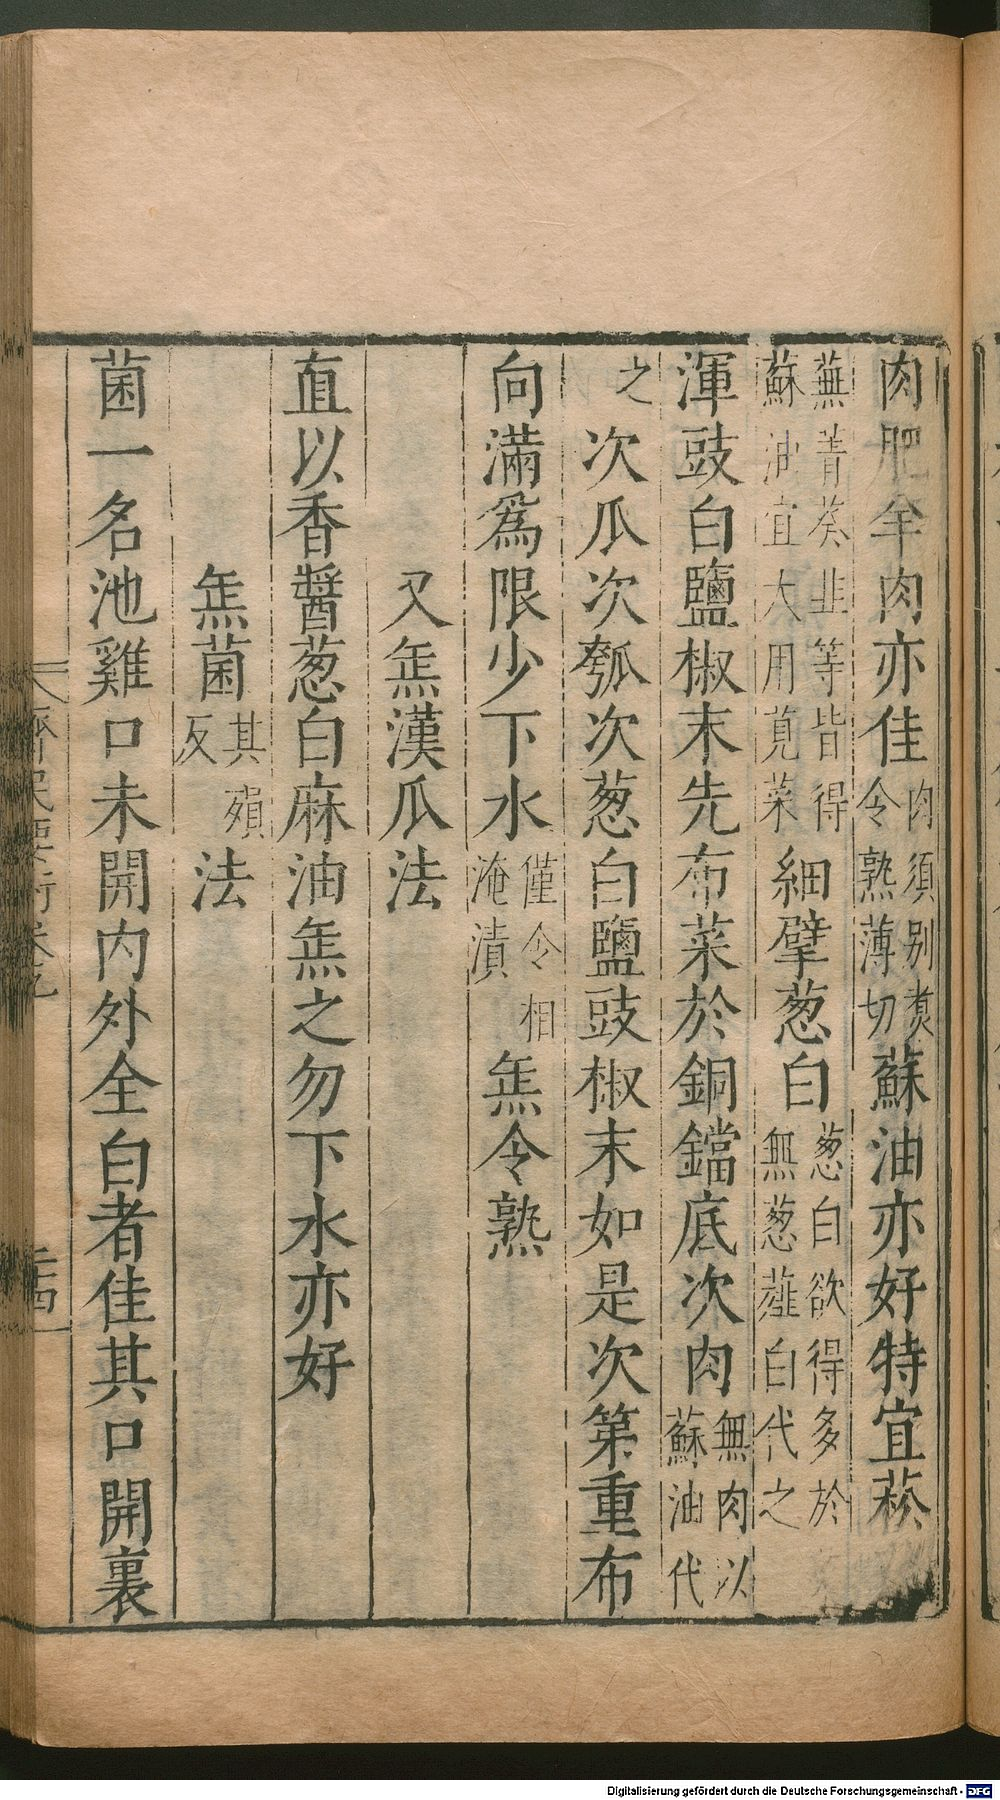 肉肥羊肉亦佳肉須別煑令熟薄切蘇油亦好特宜菘
蕪菁葵韭等皆得蘇油宜大用莧菜細擘葱白葱白欲得多於無葱薤白代之
渾豉白鹽椒末先布菜於銅鐺底次肉無肉以蘇油代
之次瓜次瓠次葱白鹽豉椒末如是次第重布
向滿爲限少下水僅令相淹漬缹令熟
又缹漢瓜法
直以香醬葱白麻油缹之勿下水亦好
缹菌其殞反法
菌一名池雞口未開內外全白者佳其口開裏
齊民要術卷九
Digitalisierung gefördert durch die Deutsche Forschungsgemeinschaft - DFG